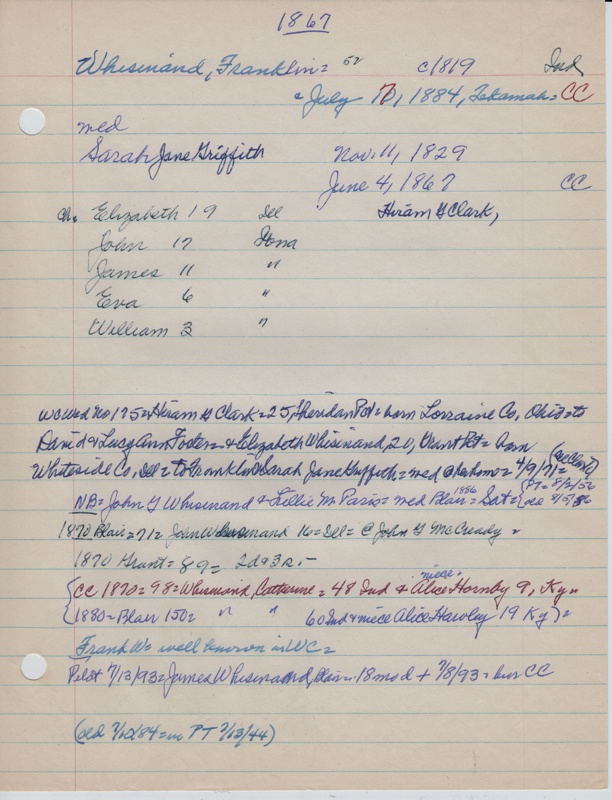 1867
Whisinand, Franklin = 52 c1819 Ind
July 17, 1884, Tekamah = CC
med
Sarah Jane Griffith Nov. 11, 1829
June 4, 1867 CC
Ch. Elizabeth 19 Ill Hiram G Clark,
John 17 Iowa
James 11 "
Eva 6 "
William 3 "
WC Wed No 175 = Hiram G Clark = 25, Sheridan Pct = born Lorraine Co, Ohio = to
David & Lucy Ann Foster = & Elizabeth Whisinand, 20, Grant Pct = born
Whiteside Co, Ill = to Franklin & Sarah Jane Griffith = med = 7/9/71 = (see Clark)
NB = John G Whisinand & Lillie M Paris = med Blair = 1886 Sat = PT = 8/2/56
8/5/86
1870 Blair = 71 = John Whisenand 16 = Ill = @ John G McCready =
1870 Grant = 89 =
{CC 1870 = 98 = Whisinand, Catherine = 48 Ind & niece, Alice Hornby 9, Ky =
{1880 = Blair 150 = " " 60 Ind & niece Alice Hawley 19 Ky} =
Frank W = well known in WC =
Pilot 7/13/93 = James Whisinand, Blair = 18 mo d + 7/8/93 = bur CC
(old = in PT 7/13/44)